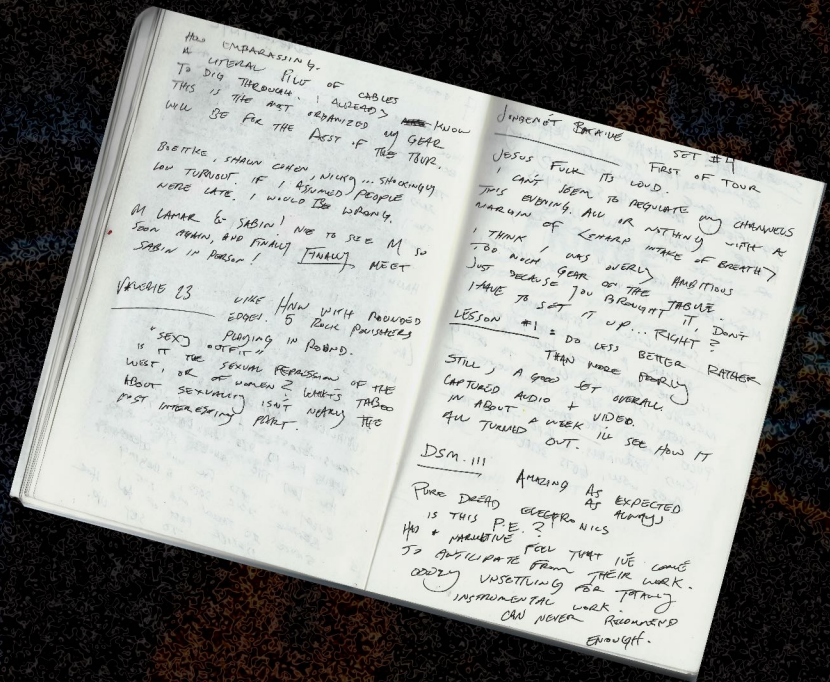 HOW EMBARASSING.
A LITERAL PILE OF CABLES
TO DIG THROUGH. I ALREADY KNOW
THIS IS THE MOST ORGANIZED MY GEAR
WILL BE FOR THE REST OF THE TOUR.
BOETTKE, SHAWN COHEN, NICKY... SHOCKINGLY
LOW TURNOUT. IF I ASSUMED PEOPLE
WERE LATE. I WOULD BE WRONG.
M LAMAR & SABIN! NICE TO SEE M SO
SOON AGAIN, AND FINALLY FINALLY MEET
SABIN IN PERSON!
VALERIE 23
LIKE HNW WITH ROUNDED
EDGES. 5 ROCK POLISHERS
PLAYING IN ROUND.
"SEXY OUTFIT"
IS IT THE SEXUAL REPRESSION OF THE
WEST, OR OF WOMEN? WHATS TABOO
ABOUT SEXUALITY ISN'T NEARLY THE
MOST INTERESTING PART.
SET #4
FIRST OF TOUR
JESUS FUCK ITS LOUD.
I CAN'T SEEM TO REGULATE MY CHANNELS
THIS EVENING. ALL OR NOTHING WITH A
MARGIN OF <SHARP INTAKE OF BREATH>
I THINK I WAS OVERLY AMBITIOUS
TOO MUCH GEAR ON THE TABLE.
JUST BECAUSE YOU BROUGHT IT, DON'T
HAVE TO SET IT UP... RIGHT?
LESSON #1: DO LESS BETTER RATHER
THAN MORE POORLY
STILL, A GOOD SET OVERALL.
CAPTURED AUDIO + VIDEO.
IN ABOUT A WEEK ILL SEE HOW IT
ALL TURNED OUT.
DSM.III
AMAZING AS EXPECTED
AS ALWAYS
PURE DREAD ELECTRONICS
IS THIS P.E.?
HAD A NARRATIVE FEEL THAT I'VE COME
TO ANTICIPATE FROM THEIR WORK.
ODDLY UNSETTLING FOR TOTALLY
INSTRUMENTAL WORK.
CAN NEVER RECOMMEND
ENOUGH.